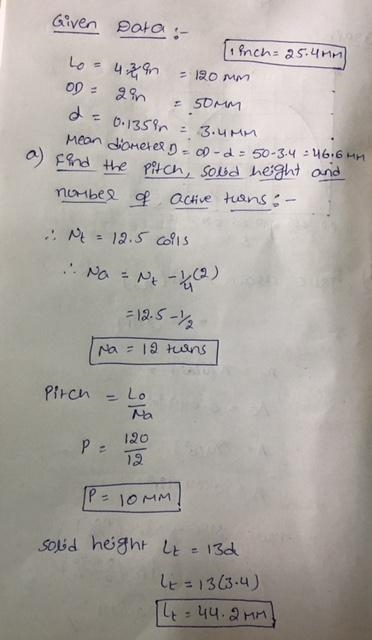 Given Data :-
1 inch = 25.4 MM
Lo = 4 3/4 in = 120 mm
OD = 2 in = 50 MM
d = 0.135 in = 3.4 MM
Mean diameter D = OD - d = 50 - 3.4 = 46.6 MM
a) Find the pitch, solid height and
number of active turns :-
∴ Nt = 12.5 coils
∴ Na = Nt - 1/4 (2)
= 12.5 - 1/2
Na = 12 turns
Pitch = Lo/Na
P = 120/12
P = 10 MM
Solid height Lt = 13d
Lt = 13(3.4)
Lt = 44.2 MM